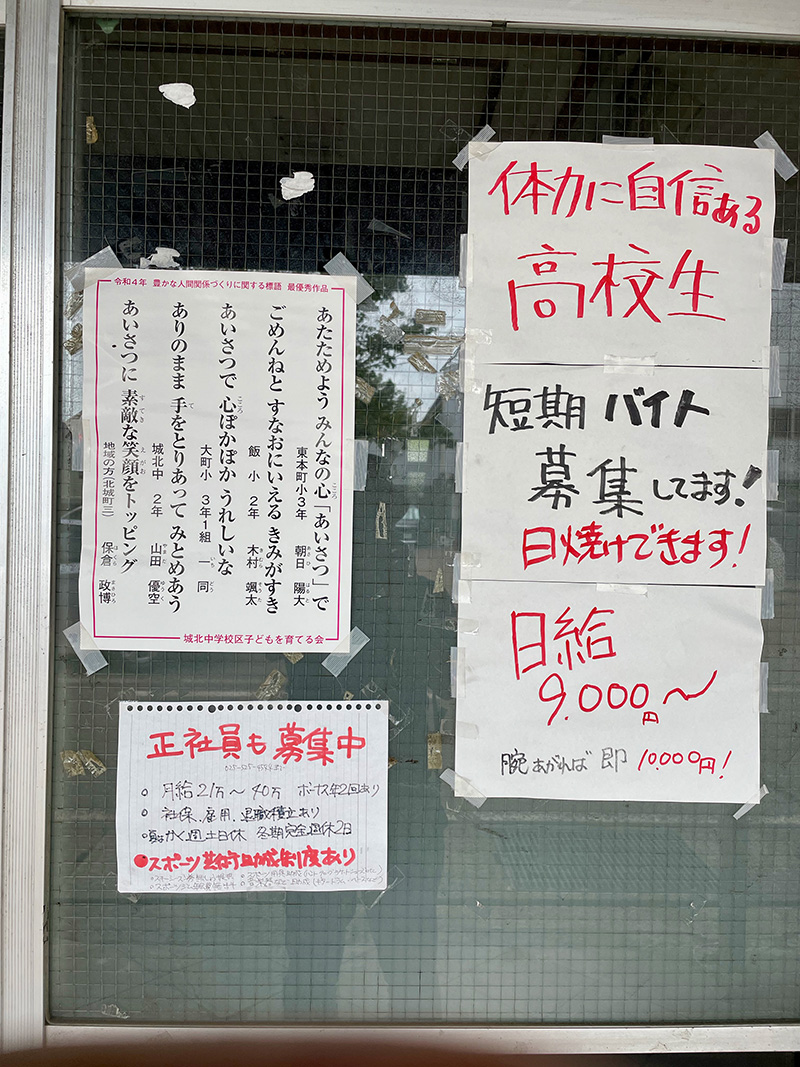 体力に自信ある
高校生
短期バイト
募集してます!
日焼けできます!
日給
9.000円〜
腕あがれば即10.000円!
令和4年 豊かな人間関係づくりに関する標語 最優秀作品
あたためよう みんなの心「あいさつ」で
東本町小3年 朝日 陽大
ごめんねと すなおにいえる きみがすき
飯小 2年 木村 颯太
あいさつで 心ぽかぽか うれしいな
大町小 3年1組 一同
ありのまま 手をとりあって みとめあう
城北中 2年 山田 優空
あいさつに 素敵な笑顔をトッピング
地域の方(北城町三) 保倉 政博
城北中学校区子どもを育てる会
正社員も募集中
○月給21万〜40万 ボーナス年2回あり
○社保、雇用、退職積立あり
週土日休 冬期完全週休2日
●スポーツ 助成制度あり